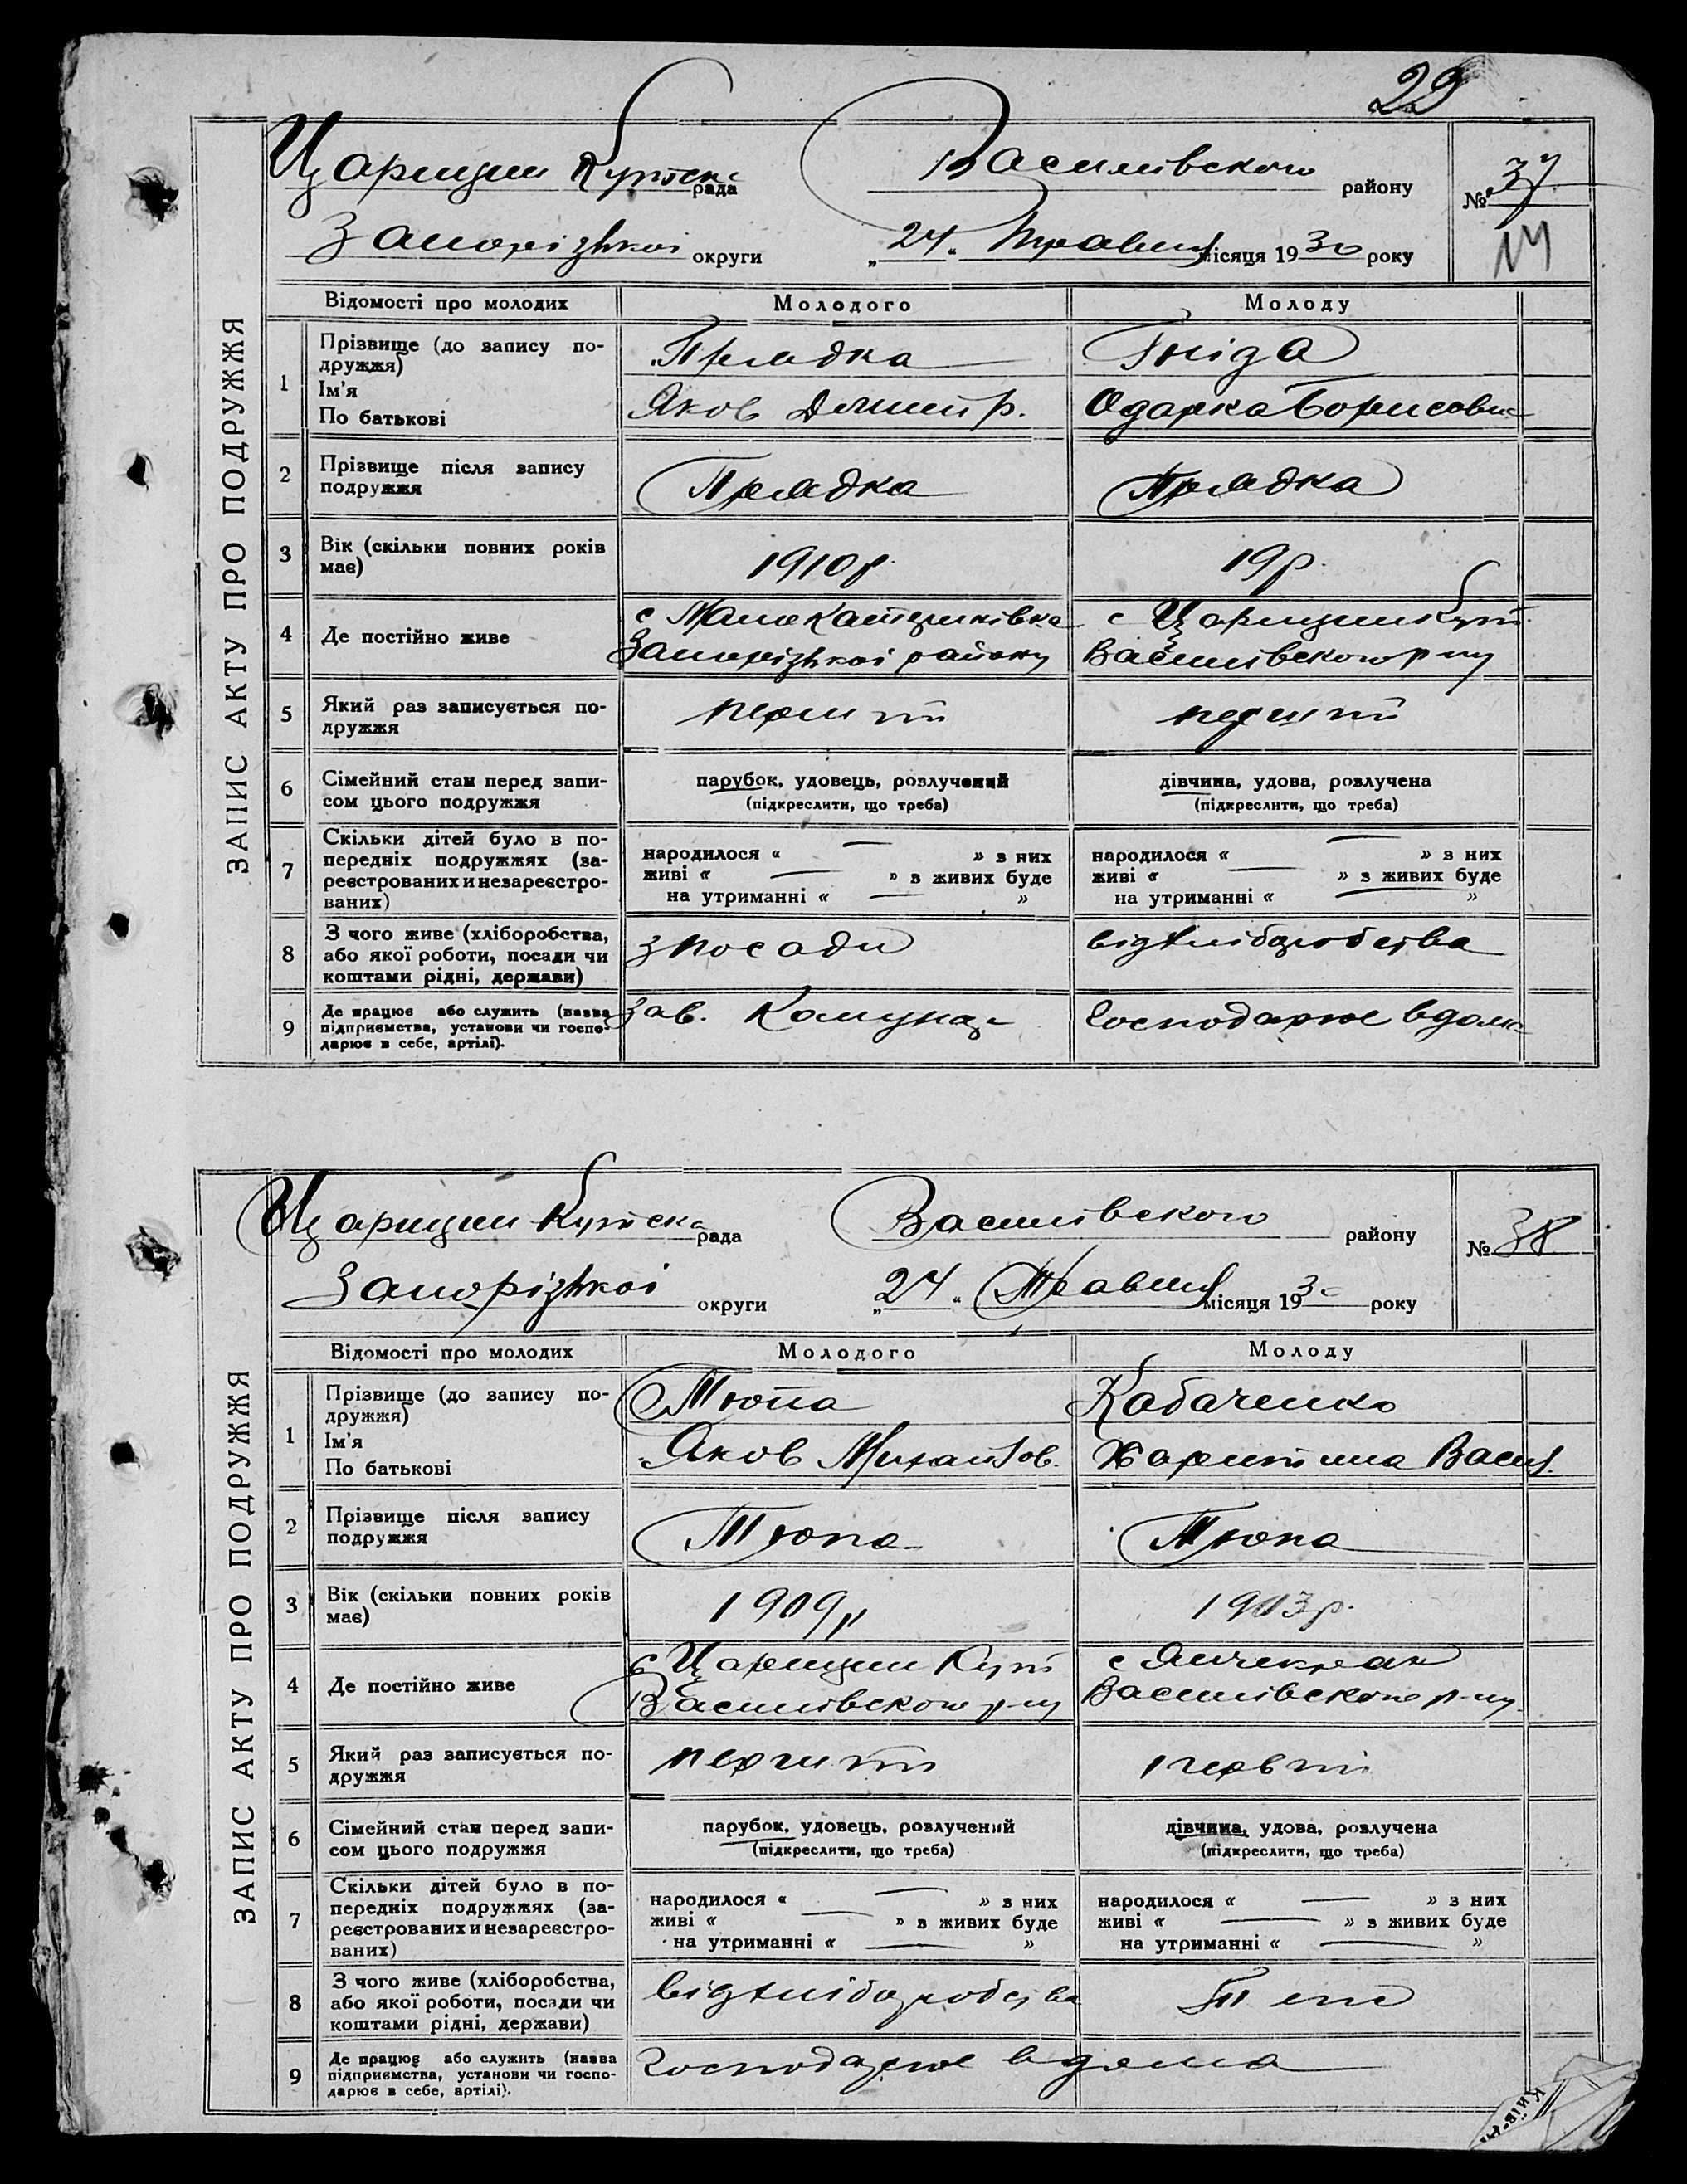 29
Царицин Кутськ рада Василівського району № 37
Запоріжкої округи „24“ Травня місяця 1930 року
ЗАПИС АКТУ ПРО ПОДРУЖЖЯ
Відомості про молодих Молодого Молоду
1 Прізвище (до запису по-
дружжя)
Ім'я
По батькові
Прядка Гніда
Яков Дмитр. Одарка Борисовн
2 Прізвище після запису
подружжя
Прядка Прядка
3 Вік (скільки повних років
має)
1910р 19р.
4 Де постійно живе
с Мало Катеринівка с Царицин Кут
Запоріжкої району Василівського р-ну
5 Який раз записується по-
дружжя
перши
6 Сімейний стан перед запи-
сом цього подружжя
парубок, удовець, розлучений дівчина, удова, розлучена
(підкреслити, що треба) (підкреслити, що треба)
7 Скільки дітей було в по-
передніх подружжях (за-
реєстрованих и незареєстро-
ваних)
народилося « — » з них народилося « — » з них
живі « — » з живих буде живі « — » з живих буде
на утриманні « — » на утриманні « — »
8 З чого живе (хліборобства,
або якої роботи, посади чи
коштами рідні, держави)
з посади від хліборобства
9 Де працює або служить (назва
підприємства, установи чи госпо-
дарює в себе, артілі).
Зав. Господарює вдома
Царицин Кутська рада Василівского району № 38
Запоріжкої округи „24“ Травня місяця 193 року
ЗАПИС АКТУ ПРО ПОДРУЖЖЯ
Відомості про молодих Молодого Молоду
1 Прізвище (до запису по-
дружжя)
Ім'я
По батькові
Тюпа Кабаченко
Яков Михайлов. Харитина Васил.
2 Прізвище після запису
подружжя
Тюпа Тюпа
3 Вік (скільки повних років
має)
1909р 1903р.
4 Де постійно живе
с Царицин Кут с Янчекрак
Василівського р-ну Василівского р-ну
5 Який раз записується по-
дружжя
6 Сімейний стан перед запи-
сом цього подружжя
парубок, удовець, розлучений дівчина, удова, розлучена
(підкреслити, що треба) (підкреслити, що треба)
7 Скільки дітей було в по-
передніх подружжях (за-
реєстрованих и незареєстро-
ваних)
народилося « — » з них народилося « — » з них
живі « — » з живих буде живі « — » з живих буде
на утриманні « — » на утриманні « — »
8 З чого живе (хліборобства,
або якої роботи, посади чи
коштами рідні, держави)
від хліборобства Теж
9 Де працює або служить (назва
підприємства, установи чи госпо-
дарює в себе, артілі).
Господарює вдома